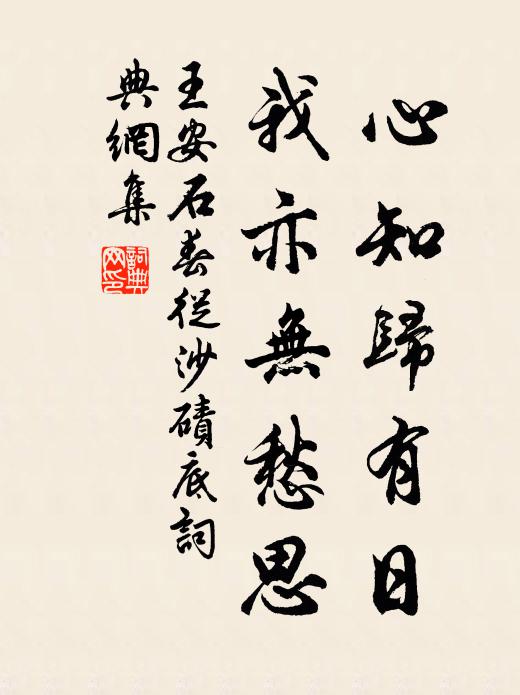 心知歸有日
我亦無愁思
王安石春從沙磧底詞
典網集
詞典
网印